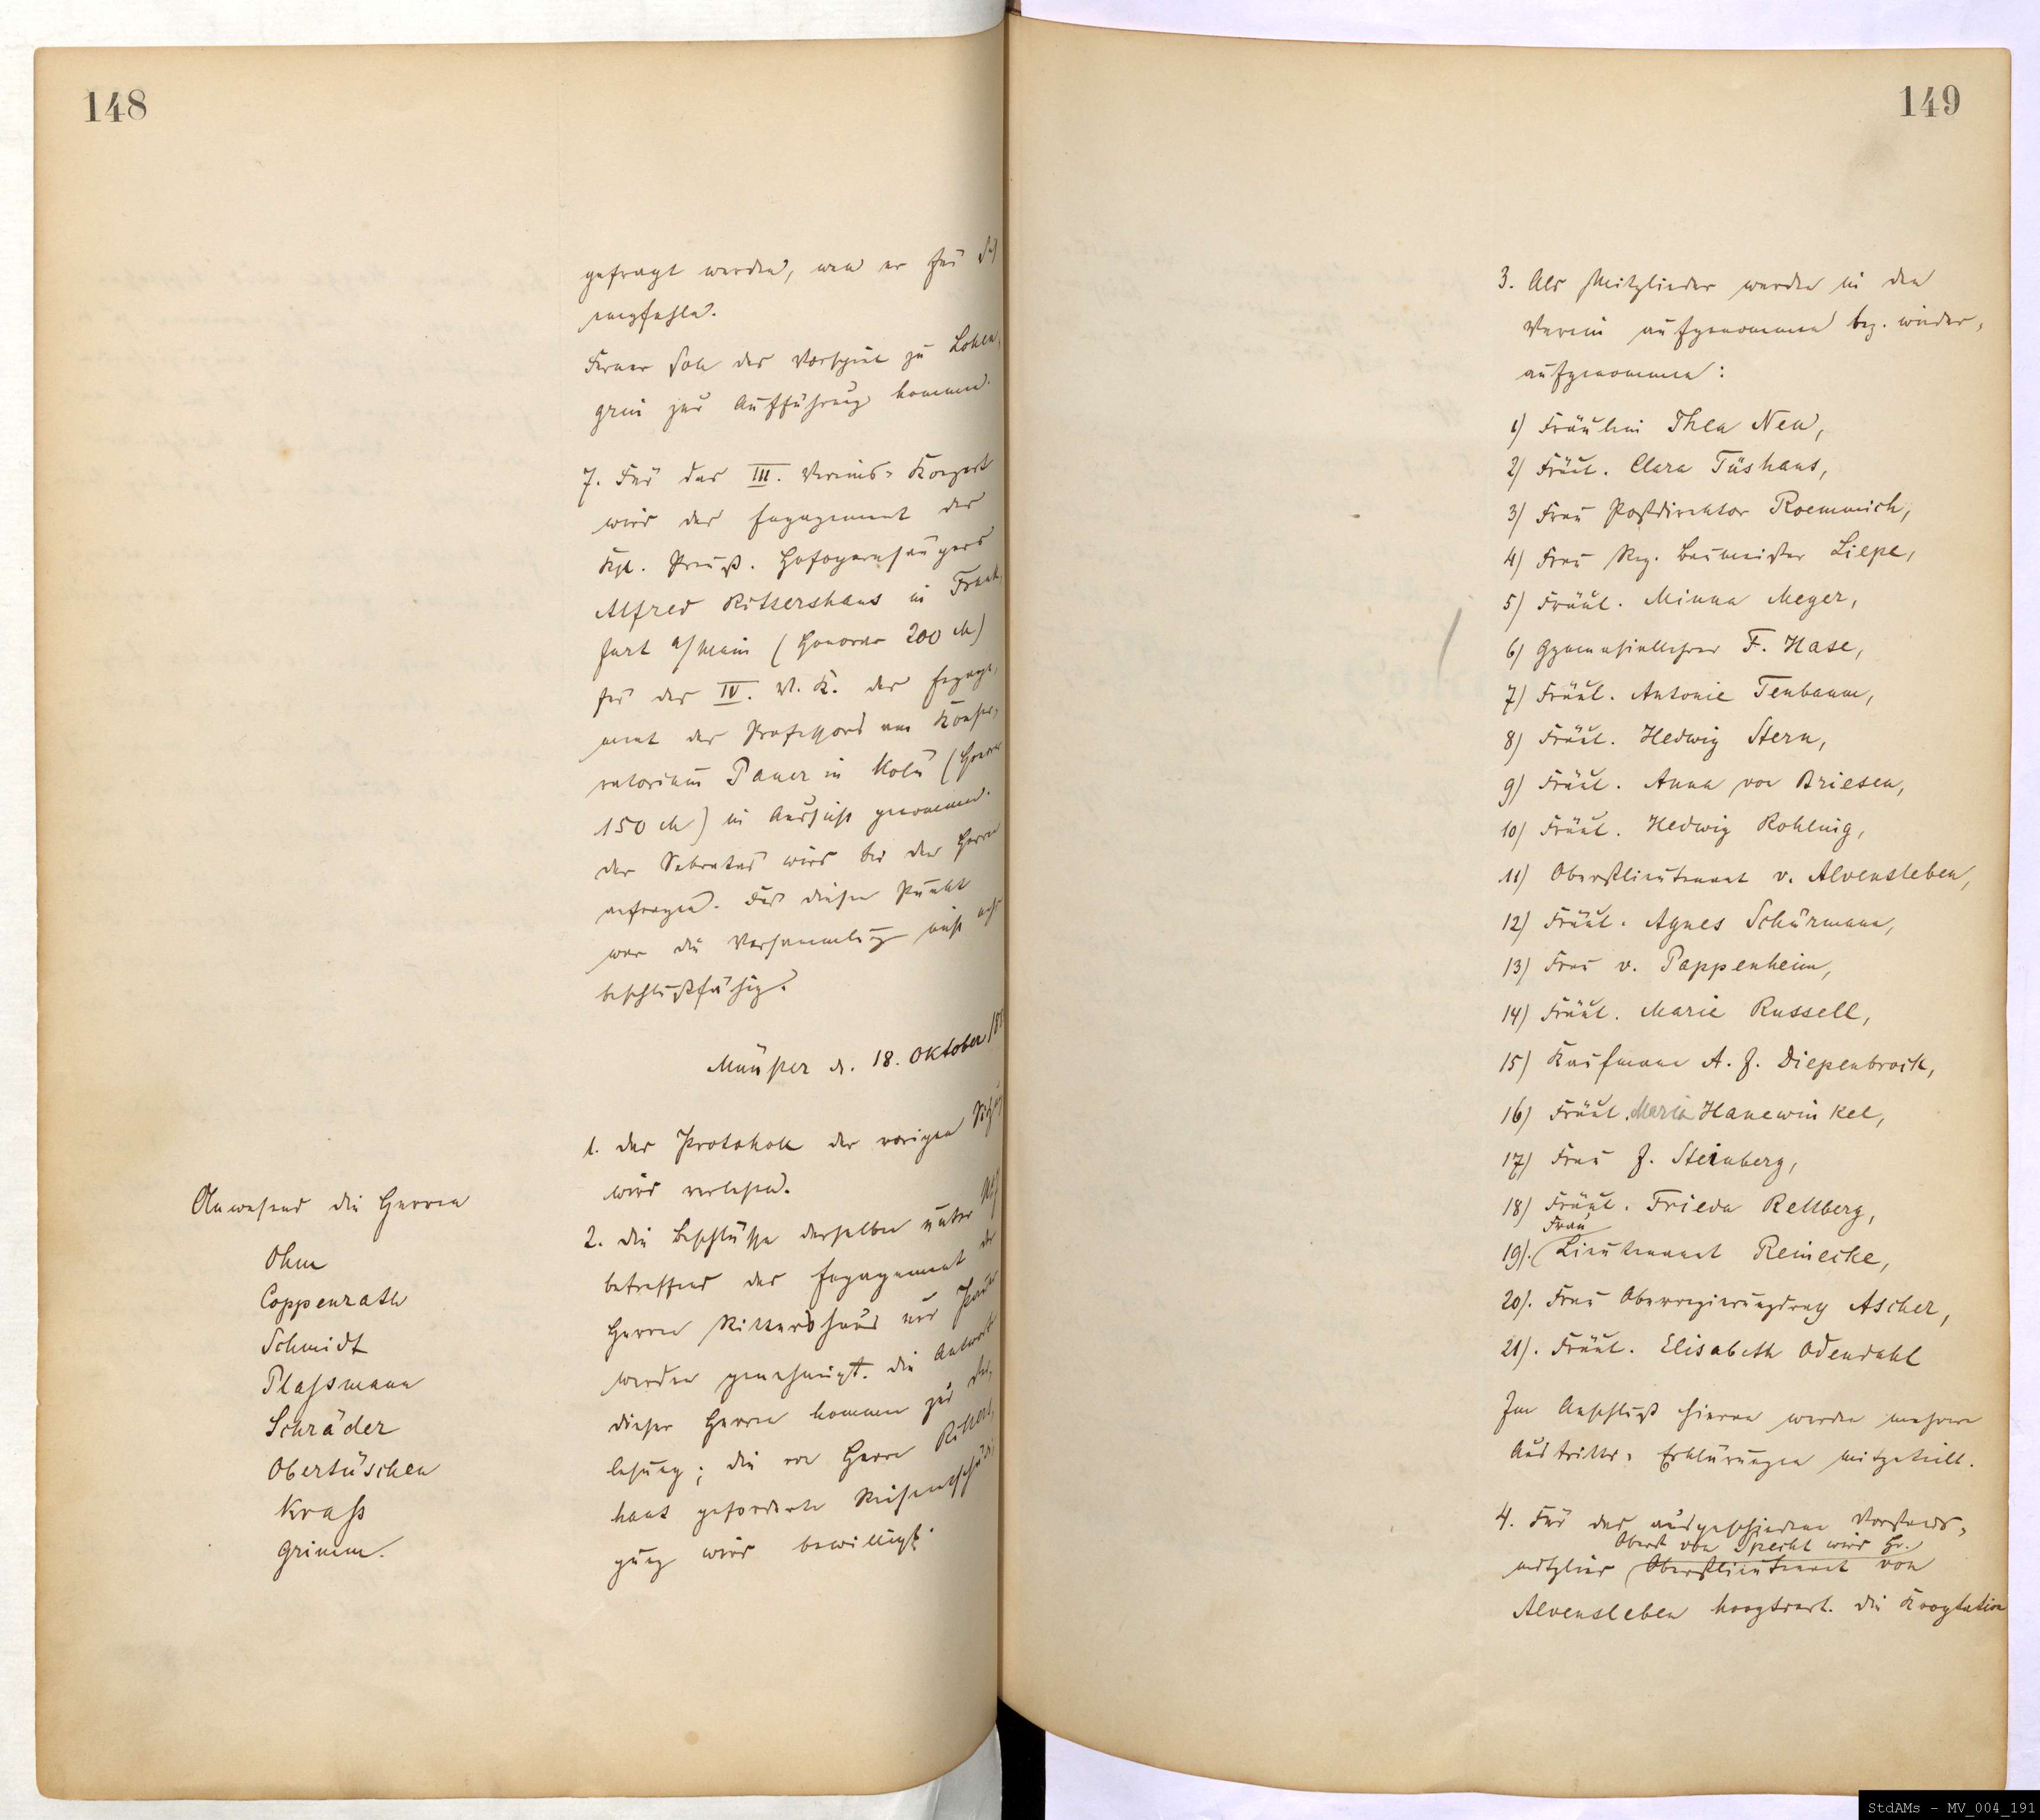 148
gefragt werden, wen er für
empfehle.
Ferner soll das Vorspiel zu Lohen-
grin zur Aufführung kommen.
7. Für das III. Vereins-Konzert
wird das Engagement des
Kgl. Preuß. Hofopernsängers
Alfred Rittershaus in Frank-
furt a/Main (Honorar 200 M)
für das IV. V. K. das Engage-
ment des Professors am Konser-
vatorium Pauer in Köln (Honorar
150 M) in Aussicht genommen.
Der Sekretär wird bei den Herren
anfragen. Für diesen Punkt
war die Versammlung nicht mehr
beschlußfähig.
Münster d. 18. Oktober
Anwesend die Herren
Ohm
Coppenrath
Schmidt
Plaßmann
Schräder
Obertüschen
Kraß
Grimm.
1. Das Protokoll der vorigen Sitzung
wird verlesen.
2. Die Beschlüsse derselben unter
betreffend das Engagement der
Herren Rittershaus und Pauer
werden genehmigt. Die Antworten
dieser Herren kommen zur Ver-
lesung; die von Herrn Ritters-
haus geforderte Reiseentschädi-
gung wird bewilligt.
149
3. Als Mitglieder werden in den
Verein aufgenommen bez. wieder-
aufgenommen:
1) Fräulein Thea Neu,
2) Fräul. Clara Tüshaus,
3) Frau Postdirektor Roemmich,
4) Frau Reg. Baumeister Liepe,
5) Fräul. Minna Meyer,
6) Gymnasiallehrer F. Hase,
7) Fräul. Antonie Tenbaum,
8) Fräul. Hedwig Stern,
9) Fräul. Anna von Briesen,
10) Fräul. Hedwig Rohling,
11) Oberstlieutenant v. Alvensleben,
12) Fräul. Agnes Schürmann,
13) Frau v. Pappenheim,
14) Fräul. Marie Russell,
15) Kaufmann A. J. Diepenbrock,
16) Fräul. Maria Hanewinkel,
17) Frau J. Steinberg,
18) Fräul. Frieda Rellberg,
Frau
19). Lieutenant Reinecke,
20). Frau Oberregierungsrat Ascher,
21). Fräul. Elisabeth Odendahl
Im Anschluß hieran werden mehrere
Austritts-Erklärungen mitgeteilt.
4. Für das ausgeschiedene Vorstands-
Oberst von Specht wird Hr.
mitglied Oberstlieutenant von
Alvensleben kooptiert. Die Kooptation
StdAMs - MV_004_191